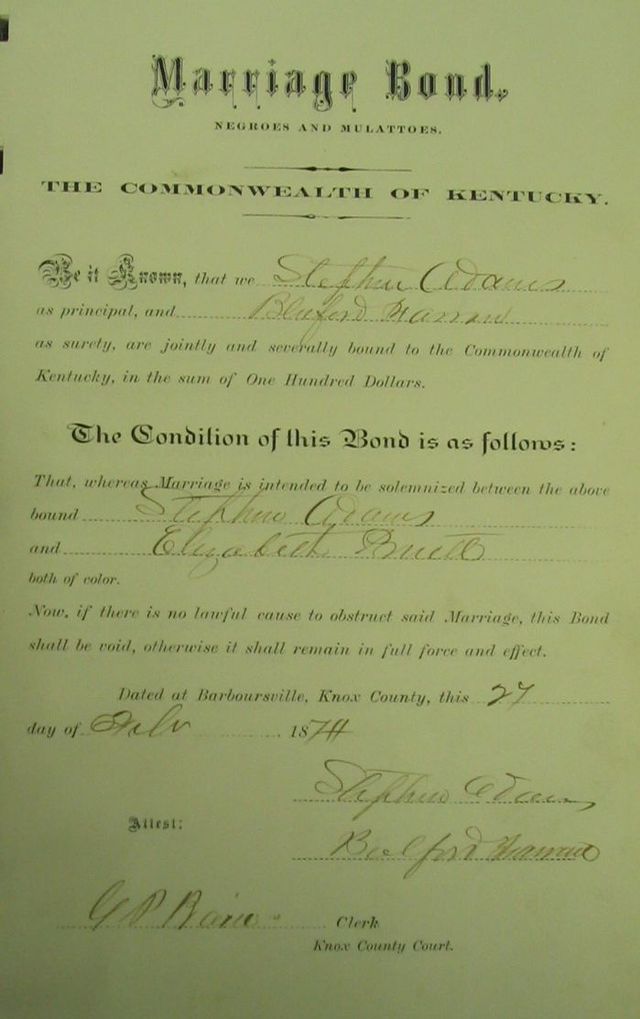 Marriage Bond.
NEGROES AND MULATTOES.
THE COMMONWEALTH OF KENTUCKY.
Be it Known, that we Stephen Adams
as principal, and Bluford
as surety, are jointly and severally bound to the Commonwealth of
Kentucky, in the sum of One Hundred Dollars.
The Condition of this Bond is as follows:
That, whereas Marriage is intended to be solemnized between the above
bound Stephen Adams
and Elizabeth Pruett
both of color.
Now, if there is no lawful cause to obstruct said Marriage, this Bond
shall be void, otherwise it shall remain in full force and effect.
Dated at Barboursville, Knox County, this 27
day of Feb 1874
Stephen Adams
Attest:
G P Clerk
Knox County Court.